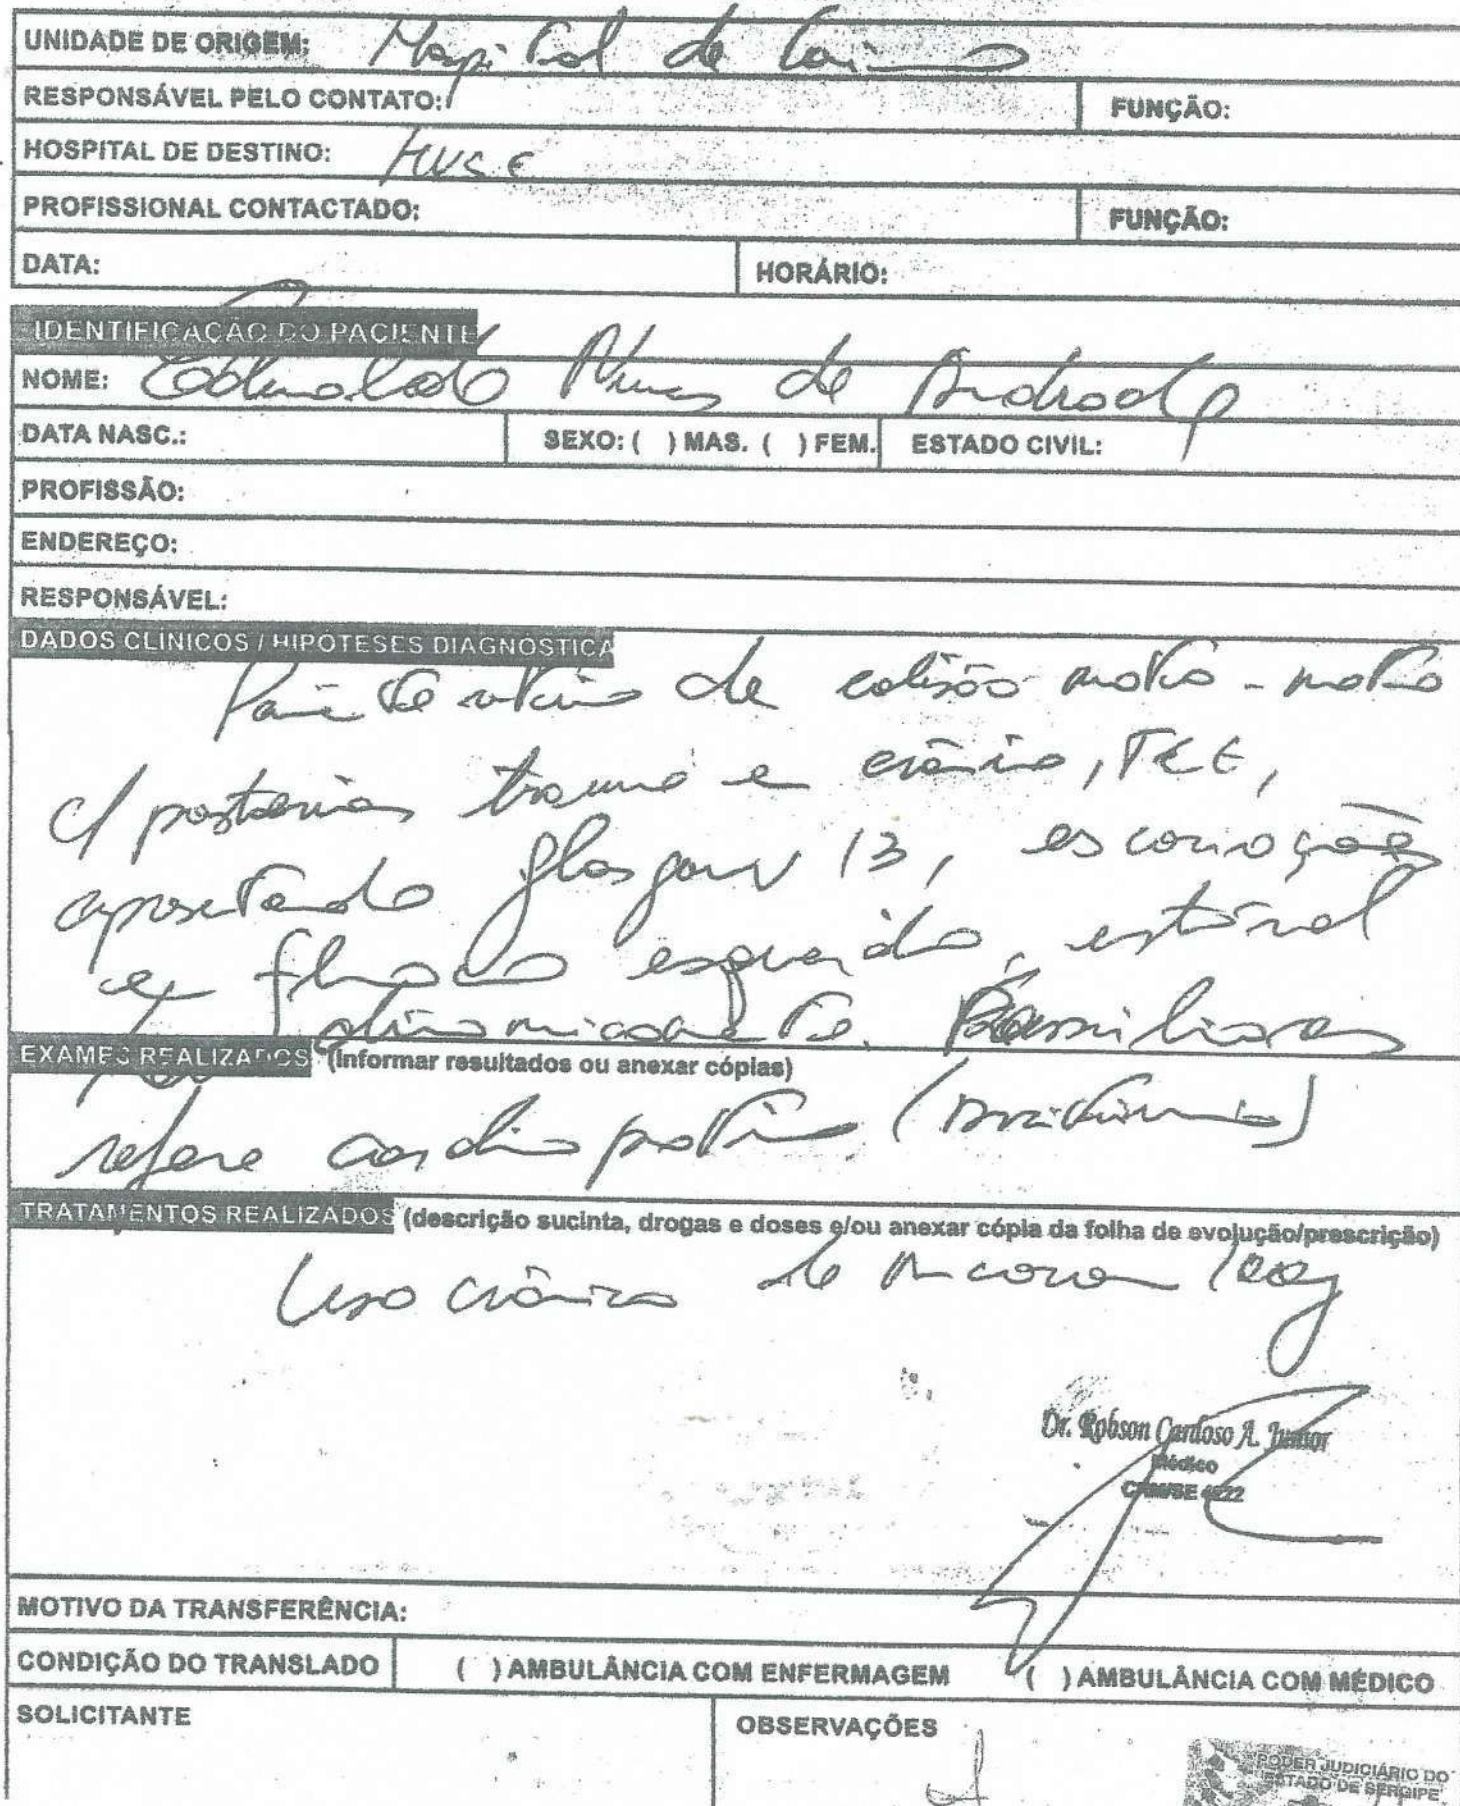 UNIDADE DE ORIGEM: Hospital de
RESPONSÁVEL PELO CONTATO: FUNÇÃO:
HOSPITAL DE DESTINO: HUSE
PROFISSIONAL CONTACTADO: FUNÇÃO:
DATA: HORÁRIO:
IDENTIFICAÇÃO DO PACIENTE
NOME: Edinaldo Nunes de Andrade
DATA NASC.: SEXO: ( ) MAS. ( ) FEM. ESTADO CIVIL:
PROFISSÃO:
ENDEREÇO:
RESPONSÁVEL:
DADOS CLÍNICOS / HIPÓTESES DIAGNÓSTICA
Paciente vítima de colisão moto - moto
c/ posterior trauma em crânio, TCE,
apresentando glasgow 13, escoriações
em flanco esquerdo, estável
hemodinamicamente. Familiares
EXAMES REALIZADOS (Informar resultados ou anexar cópias)
refere cardiopatia (arritmia)
TRATAMENTOS REALIZADOS (descrição sucinta, drogas e doses e/ou anexar cópia da folha de evolução/prescrição)
Uso crônico de Ancoron
Dr. Robson Cardoso A. Junior
Médico
CRM/SE
MOTIVO DA TRANSFERÊNCIA:
CONDIÇÃO DO TRANSLADO ( ) AMBULÂNCIA COM ENFERMAGEM ( ) AMBULÂNCIA COM MÉDICO
SOLICITANTE OBSERVAÇÕES
PODER JUDICIÁRIO DO
ESTADO DE SERGIPE